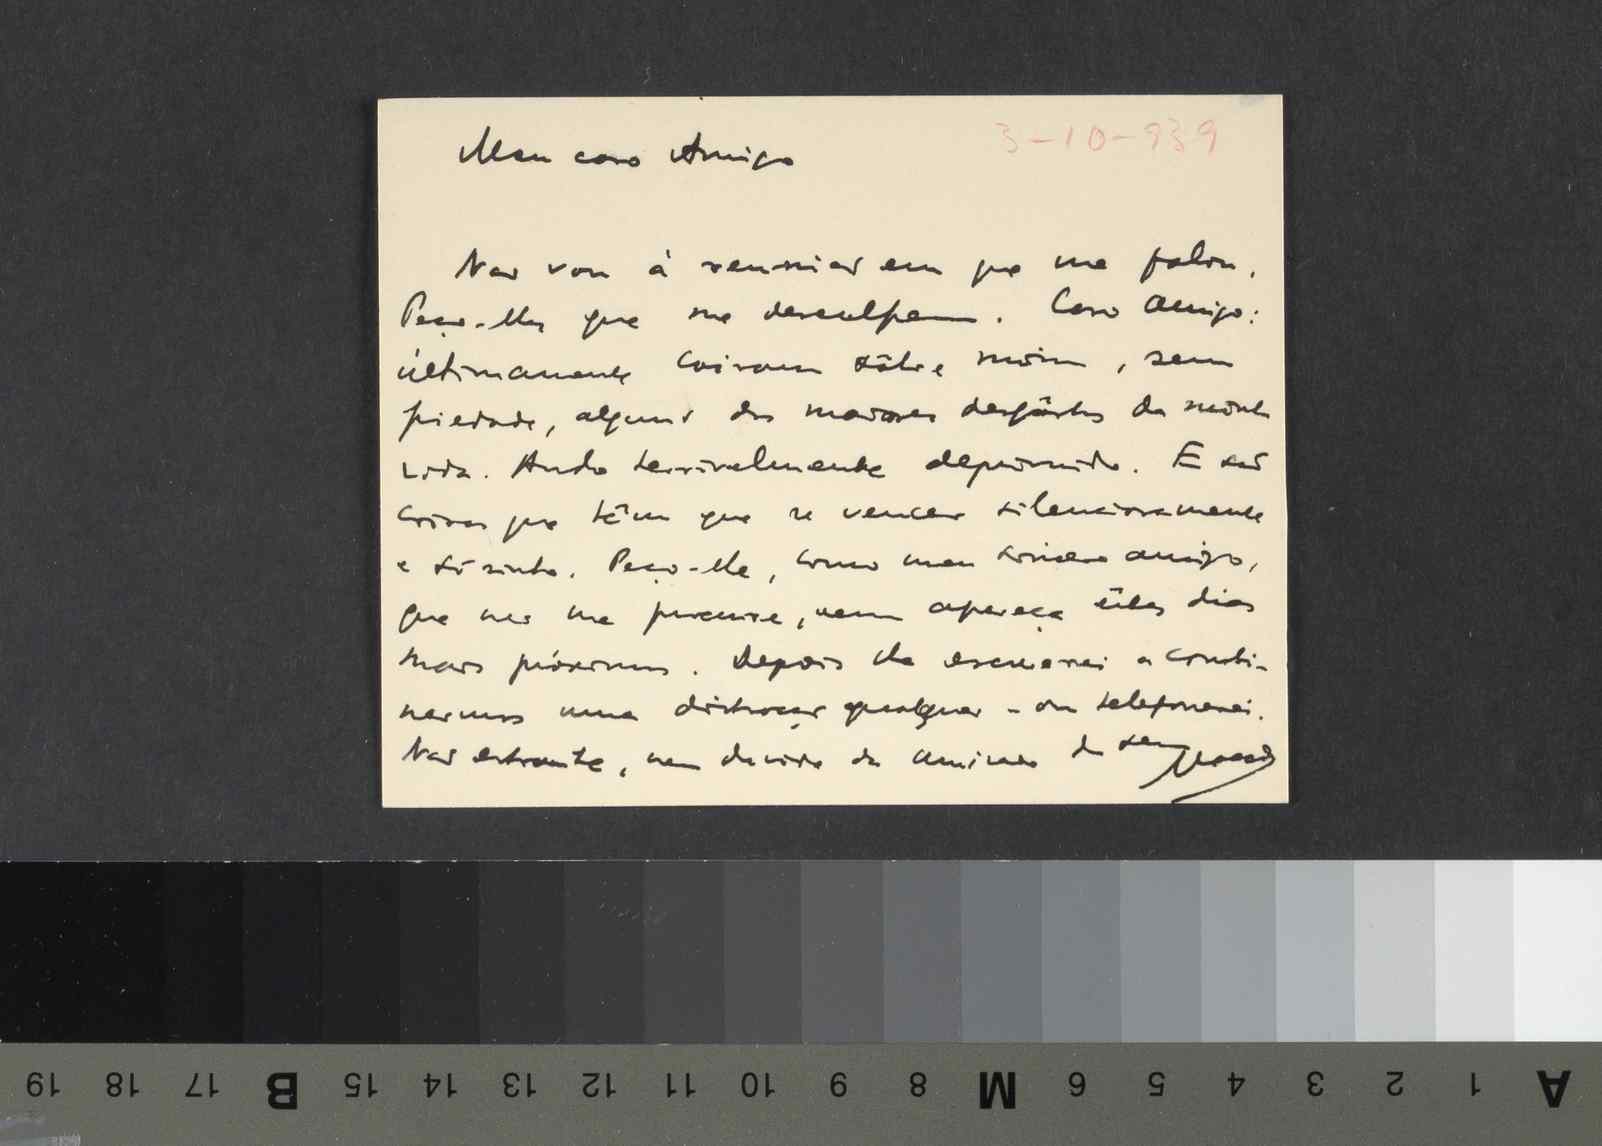 3-10-939
Meu caro Amigo
Não vou à reunião em que me falou.
Peço-lhes que me desculpem. Caro Amigo:
últimamente cairam sôbre mim, sem
piedade, alguns dos maiores desgôstos da minha
vida. Ando terrivelmente deprimido. E são
coisas que têm que se vencer silenciosamente
e sòzinho. Peço-lhe, como meu sincero amigo,
que não me procure, nem apareça êstes dias
mais próximos. Depois lhe escreverei a combi-
narmos uma distracção qualquer - ou telefonarei.
Não estranhe, nem duvide da amizade do seu
19 18 17 B 15 14 13 12 11 10 9 8 M 6 5 4 3 2 1 A